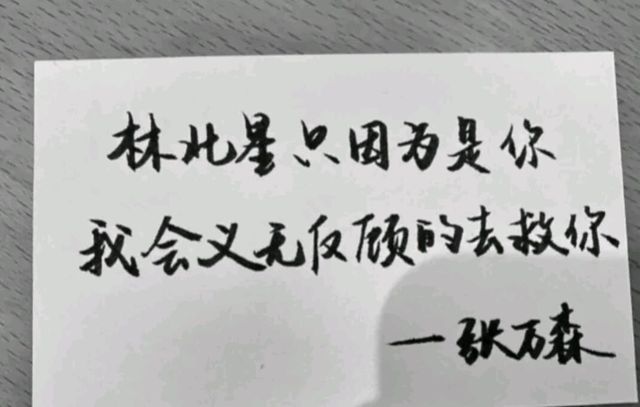 林北星只因为是你
我会义无反顾的去救你
—张万森